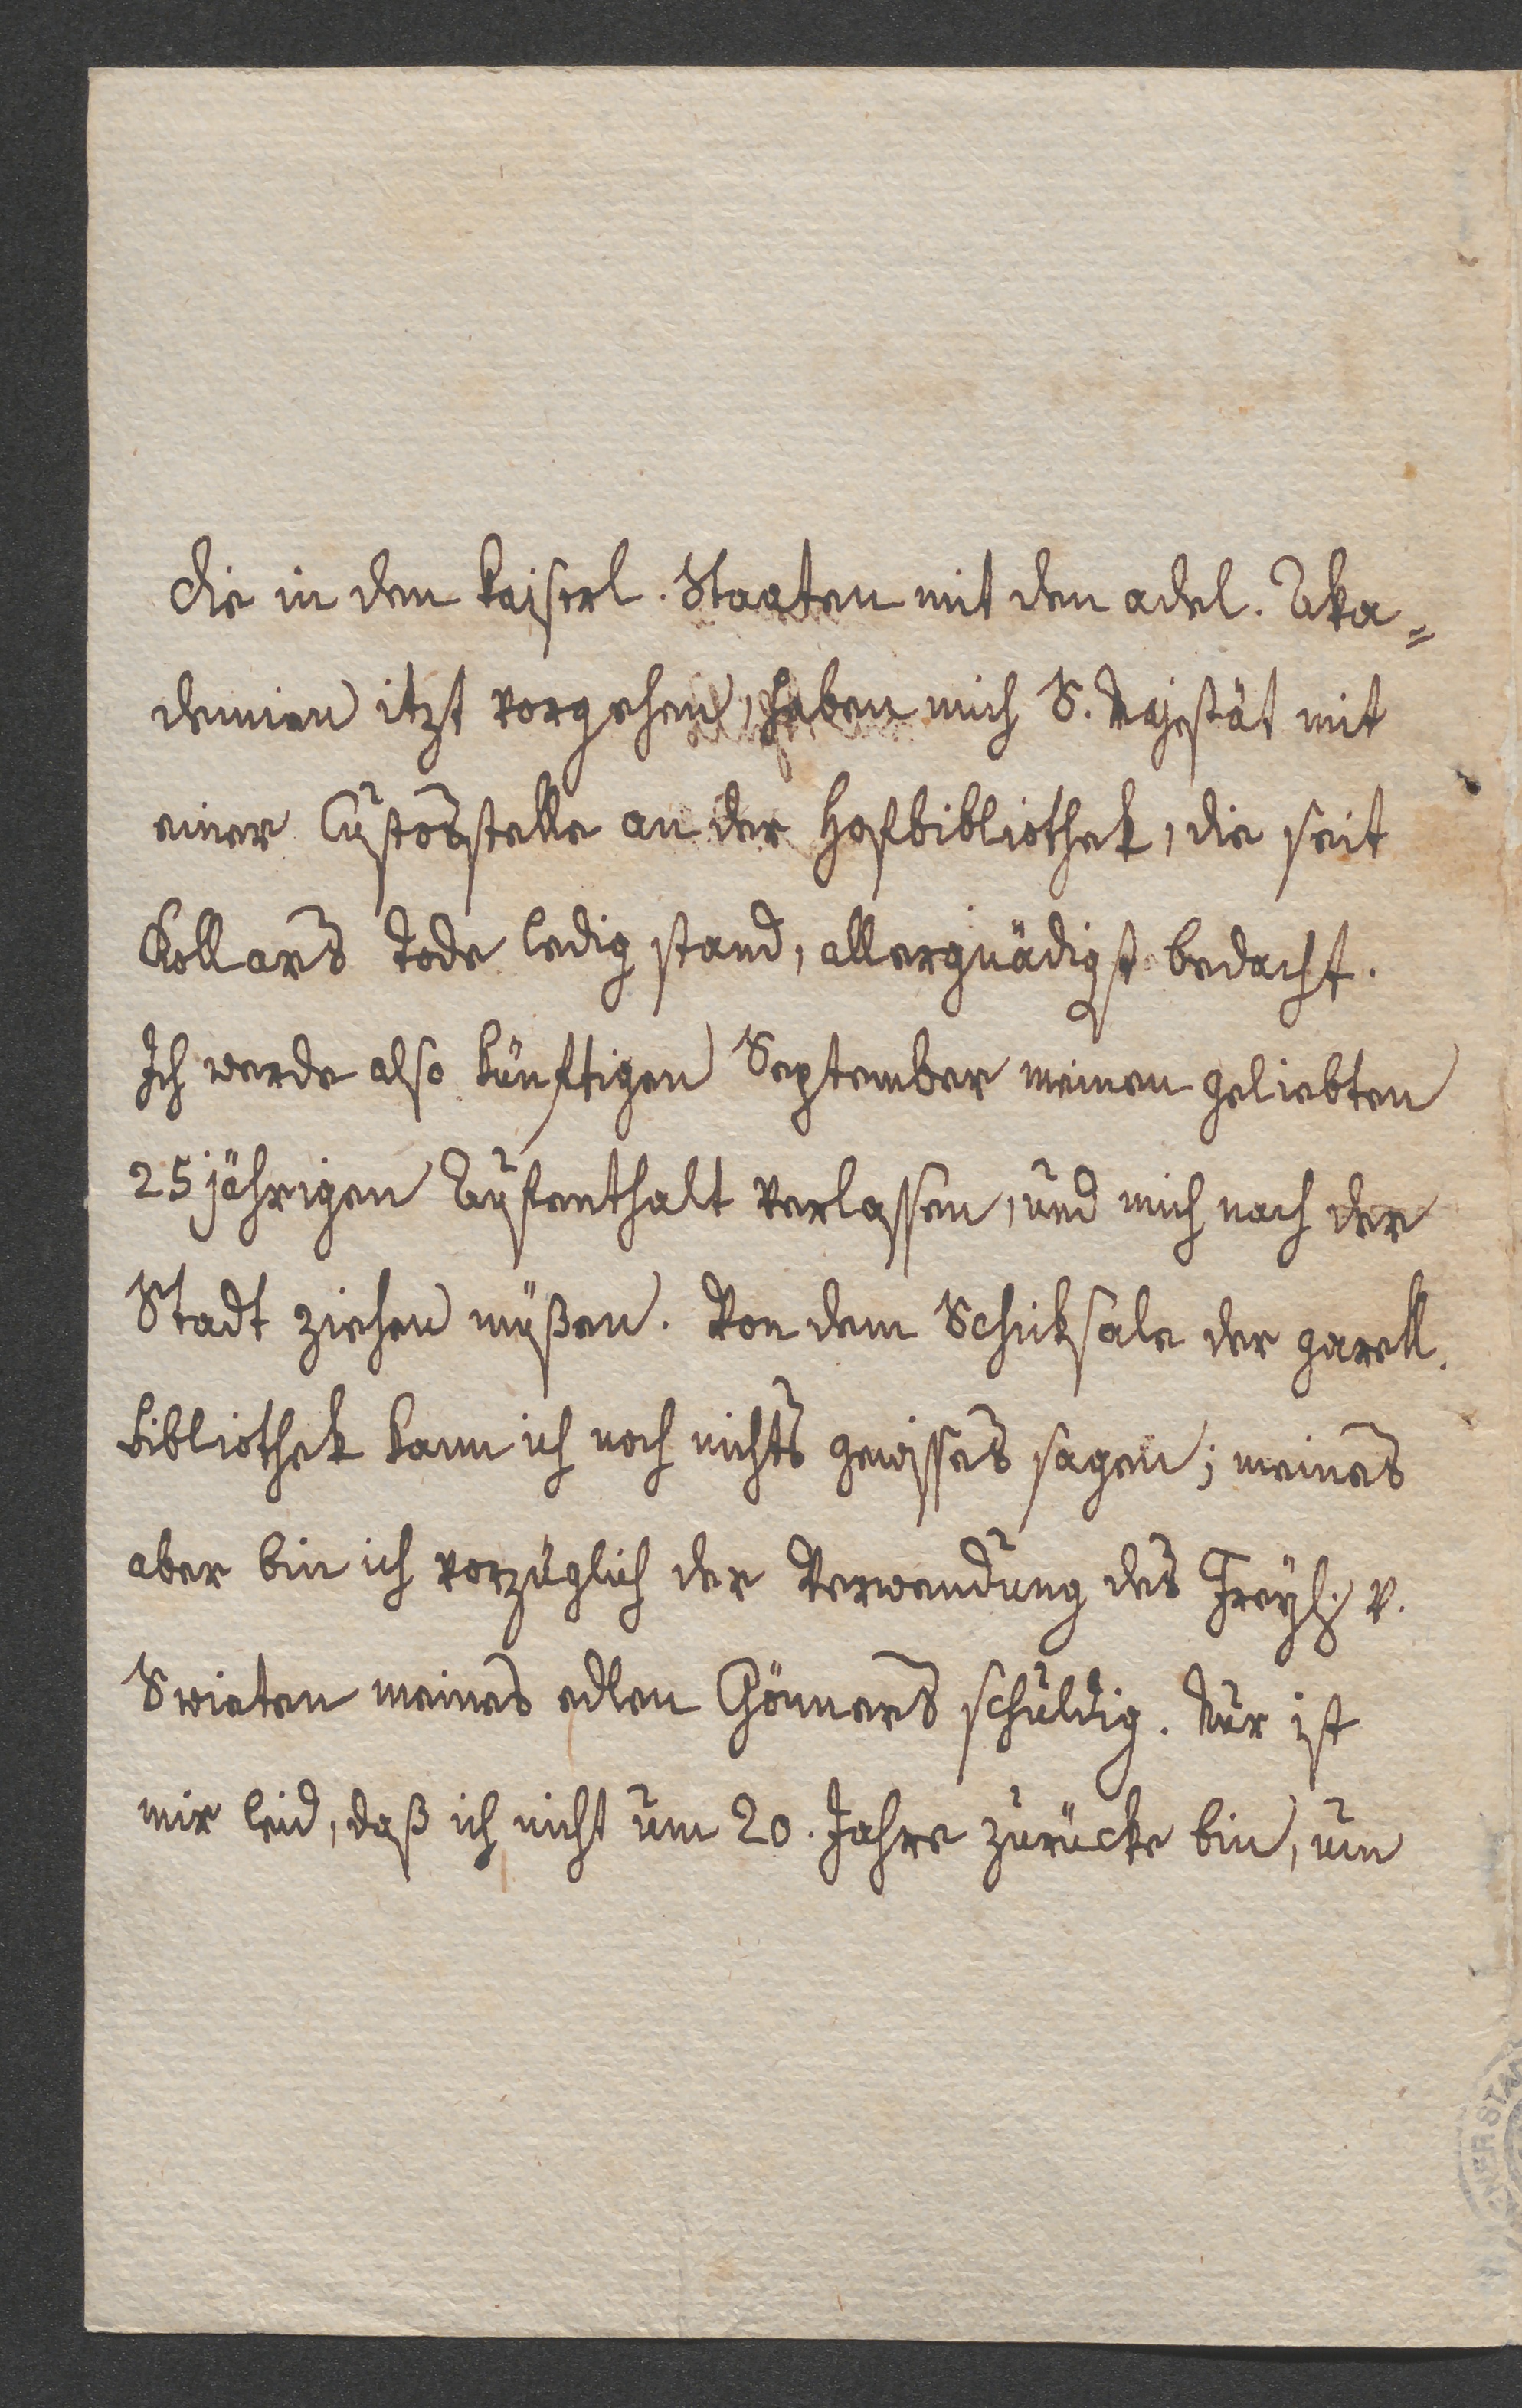 die in den kaiserl. Staaten mit den adel. Aka=
demien itzt vorgehen, haben mich S. Majestät mit
einer Custosstelle an der Hofbibliothek, die seit
Kollars Tode ledig stand, allergnädigst bedacht.
Ich werde also künftigen September meinen geliebten
25jährigen Aufenthalt verlassen, und mich nach der
Stadt ziehen müßen. Von dem Schiksale der garell.
Bibliothek kann ich noch nichts gewisses sagen; meines
aber bin ich vorzüglich der Verwendung des Freyh. v.
Swieten meines edlen Gönners schuldig. Nur ist
mir leid, daß ich nicht um 20. Jahre zurücke bin, um